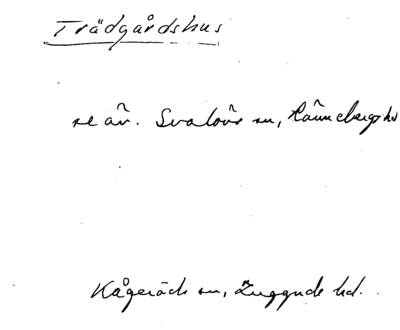 Trädgårdshus
se äv. Svalövs sn, Rönnebergs hd
Kågeröds sn, Luggude hd.